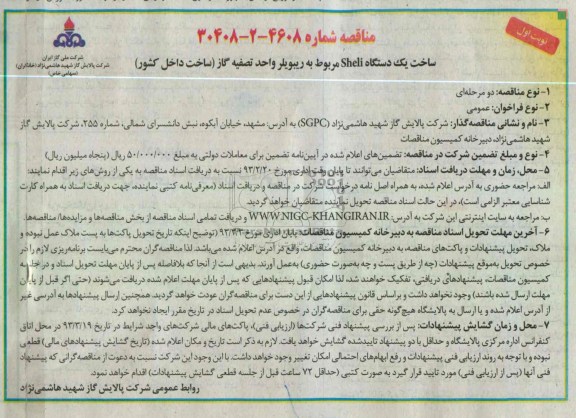 مناقصه شماره ۴۶۰۸-۲-۳۰۴۰۸
نوبت اول
شرکت ملی گاز ایران
شرکت پالایش گاز شهید هاشمی‌نژاد (خانگیران)
(سهامی خاص)
ساخت یک دستگاه Sheli مربوط به ریبویلر واحد تصفیه گاز (ساخت داخل کشور)
۱-نوع مناقصه: دو مرحله‌ای
۲-نوع فراخوان: عمومی
۳- نام و نشانی مناقصه‌گذار: شرکت پالایش گاز شهید هاشمی‌نژاد (SGPC) به آدرس: مشهد، خیابان آبکوه، نبش دانشسرای شمالی، شماره ۲۵۵، شرکت پالایش گاز
شهید هاشمی‌نژاد، دبیرخانه کمیسیون مناقصات
۴- نوع و مبلغ تضمین شرکت در مناقصه: تضمین‌های اعلام شده در آیین‌نامه تضمین برای معاملات دولتی به مبلغ ۵۰/۰۰۰/۰۰۰ ریال (پنجاه میلیون ریال)
۵- محل، زمان و مهلت دریافت اسناد: متقاضیان می‌توانند تا پایان وقت اداری مورخ ۹۳/۲/۲۰ نسبت به دریافت اسناد مناقصه به یکی از روش‌های زیر اقدام نمایند:
الف: مراجعه حضوری به آدرس اعلام شده، به همراه اصل نامه درخواست شرکت در مناقصه و دریافت اسناد (معرفی‌نامه کتبی نماینده، جهت دریافت اسناد به همراه کارت
شناسایی معتبر الزامی است)، در این حالت اسناد مناقصه تحویل نماینده متقاضیان خواهد گردید.
ب: مراجعه به سایت اینترنتی این شرکت به آدرس: WWW.NIGC-KHANGIRAN.IR و دریافت تمامی اسناد مناقصه از بخش مناقصه‌ها و مزایده‌ها/ مناقصه‌ها.
۶- آخرین مهلت تحویل اسناد مناقصه به دبیرخانه کمیسیون مناقصات: پایان وقت اداری مورخ ۹۳/۳/۳ (توضیح اینکه تاریخ تحویل پاکت‌ها به پست ملاک عمل نبوده و
ملاک، تحویل پیشنهادات و پاکت‌های مناقصه به دبیرخانه کمیسیون مناقصات، واقع در آدرس اعلام شده می‌باشد. لذا مناقصه‌گران محترم می‌بایست برنامه‌ریزی لازم را در
خصوص تحویل به‌موقع پیشنهادات (چه از طریق پست و چه به‌صورت حضوری) به‌عمل آورند. بدیهی است از آنجا که بلافاصله پس از پایان مهلت تحویل اسناد و در جلسه
کمیسیون مناقصات، پیشنهادهای دریافتی، تفکیک خواهند شد، لذا امکان قبول پیشنهادهایی که پس از پایان مهلت اعلام شده دریافت می‌شوند (حتی اگر قبل از پایان
مهلت ارسال شده باشند) وجود نخواهد داشت و براساس قانون پیشنهادهایی از این دست برای مناقصه‌گران عودت خواهد گردید. همچنین ارسال پیشنهادها به آدرسی غیر
از آدرس اعلام شده و یا ارسال به پالایشگاه هیچ‌گونه حقی برای مناقصه‌گران در خصوص عدم تحویل اسناد در تاریخ مقرر ایجاد نخواهد کرد.
۷- محل و زمان گشایش پیشنهادات: پس از بررسی پیشنهاد فنی شرکت‌ها (ارزیابی فنی)، پاکت‌های مالی شرکت‌های واجد شرایط در تاریخ ۹۳/۳/۱۹ در محل اتاق
کنفرانس اداره مرکزی پالایشگاه و حداقل با دو پیشنهاد تاییدشده گشایش خواهد یافت. لازم به ذکر است تاریخ و مکان اعلام شده (تاریخ گشایش پیشنهادهای مالی) قطعی
نبوده و با توجه به روند ارزیابی فنی پیشنهادات و رفع ابهام‌های احتمالی امکان تغییر وجود خواهد داشت. با این وجود این شرکت نسبت به دعوت از مناقصه‌گرانی که پیشنهاد
فنی آنها (پس از ارزیابی فنی) مورد تایید قرار گیرد به صورت کتبی (حداقل ۷۲ ساعت قبل از جلسه قطعی گشایش پیشنهادات) اقدام خواهد نمود.
روابط عمومی شرکت پالایش گاز شهید هاشمی‌نژاد